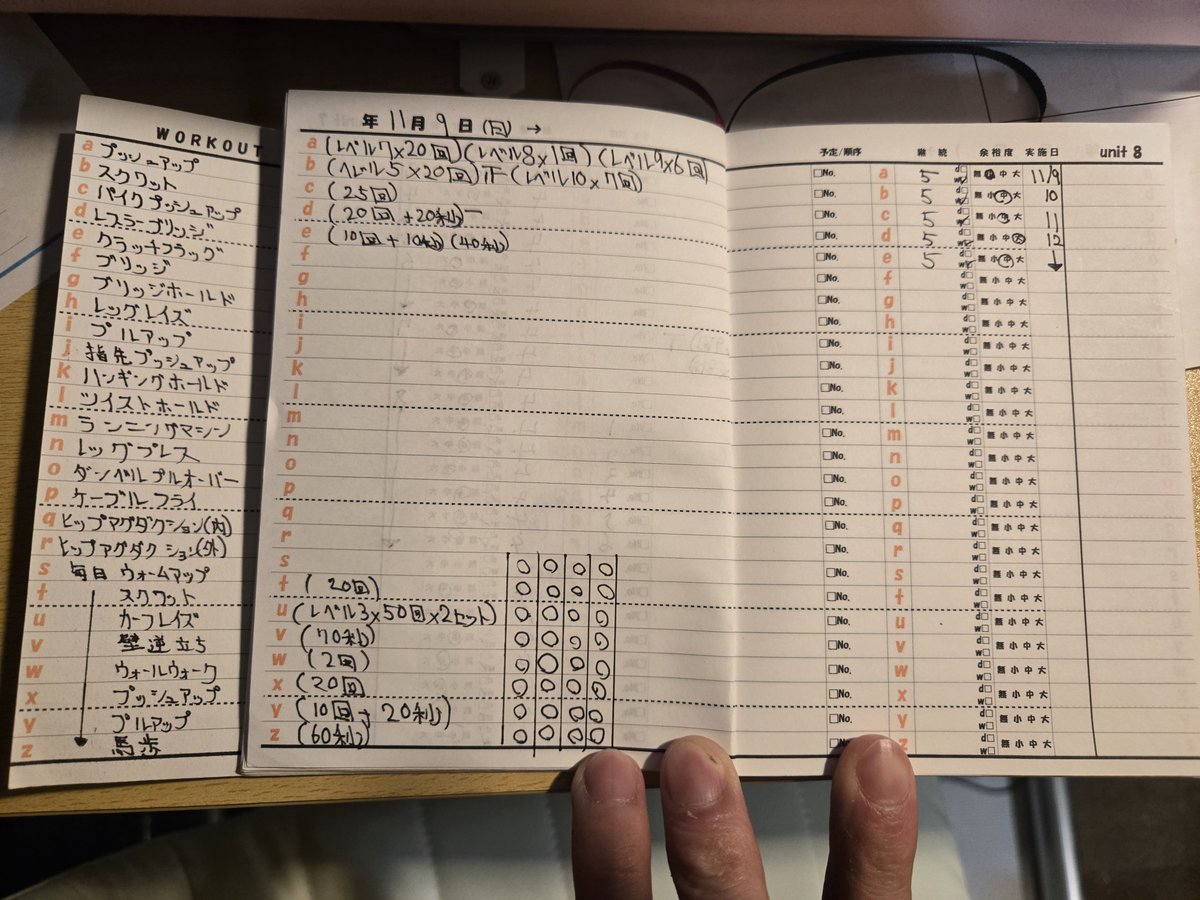 WORKOUT
a プッシュアップ
b スクワット
c パイクプッシュアップ
d レスラーブリッジ
e クラッチフラッグ
f ブリッジ
g ブリッジホールド
h レッグレイズ
i プルアップ
j 指先プッシュアップ
k ハンギングホールド
l ツイストホールド
m ランニングマシン
n レッグプレス
o ダンベルプルオーバー
p ケーブルフライ
q ヒップアグダクション(内)
r ヒップアグダクション(外)
s 毎日 ウォームアップ
t スクワット
u カーフレイズ
v 壁逆立ち
w ウォールウォーク
x プッシュアップ
y プルアップ
z 馬歩
年 11月 9日 (日) →
a (レベル7×20回)(レベル8×1回)(レベル9×6回)
b (レベル5×20回) 正 (レベル10×7回)
c (25回)
d (20回+20秒)一
e (10回+10秒)(40秒)
f
g
h
i
j
k
l
m
n
o
p
q
r
s ○ ○ ○ ○
t (20回) ○ ○ ○ ○
u (レベル3×50回×2セット) ○ ○ ○ ○
v (70秒) ○ ○ ○ ○
w (2回) ○ ○ ○ ○
x (20回 ○ ○ ○ ○
y (10回+20秒) ○ ○ ○ ○
z (60秒) ○ ○ ○ ○
予定/順序 継続 余裕度 実施日 unit 8
□No. a 5 d□ w 無小中大 11/9
□No. b 5 d□ w 無小中大 10
□No. c 5 d□ w 無小中大 11
□No. d 5 d□ w 無小中大 12
□No. e 5 d□ w 無小中大 ↓
□No. f d□ w□ 無小中大
□No. g d□ w□ 無小中大
□No. h d□ w□ 無小中大
□No. i d□ w□ 無小中大
□No. j d□ w□ 無小中大
□No. k d□ w□ 無小中大
□No. l d□ w□ 無小中大
□No. m d□ w□ 無小中大
□No. n d□ w□ 無小中大
□No. o d□ w□ 無小中大
□No. p d□ w□ 無小中大
□No. q d□ w□ 無小中大
□No. r d□ w□ 無小中大
□No. s d□ w□ 無小中大
□No. t d□ w□ 無小中大
□No. u d□ w□ 無小中大
□No. v d□ w□ 無小中大
□No. w d□ w□ 無小中大
□No. x d□ w□ 無小中大
□No. y d□ w□ 無小中大
□N z d□ w□ 無小中大